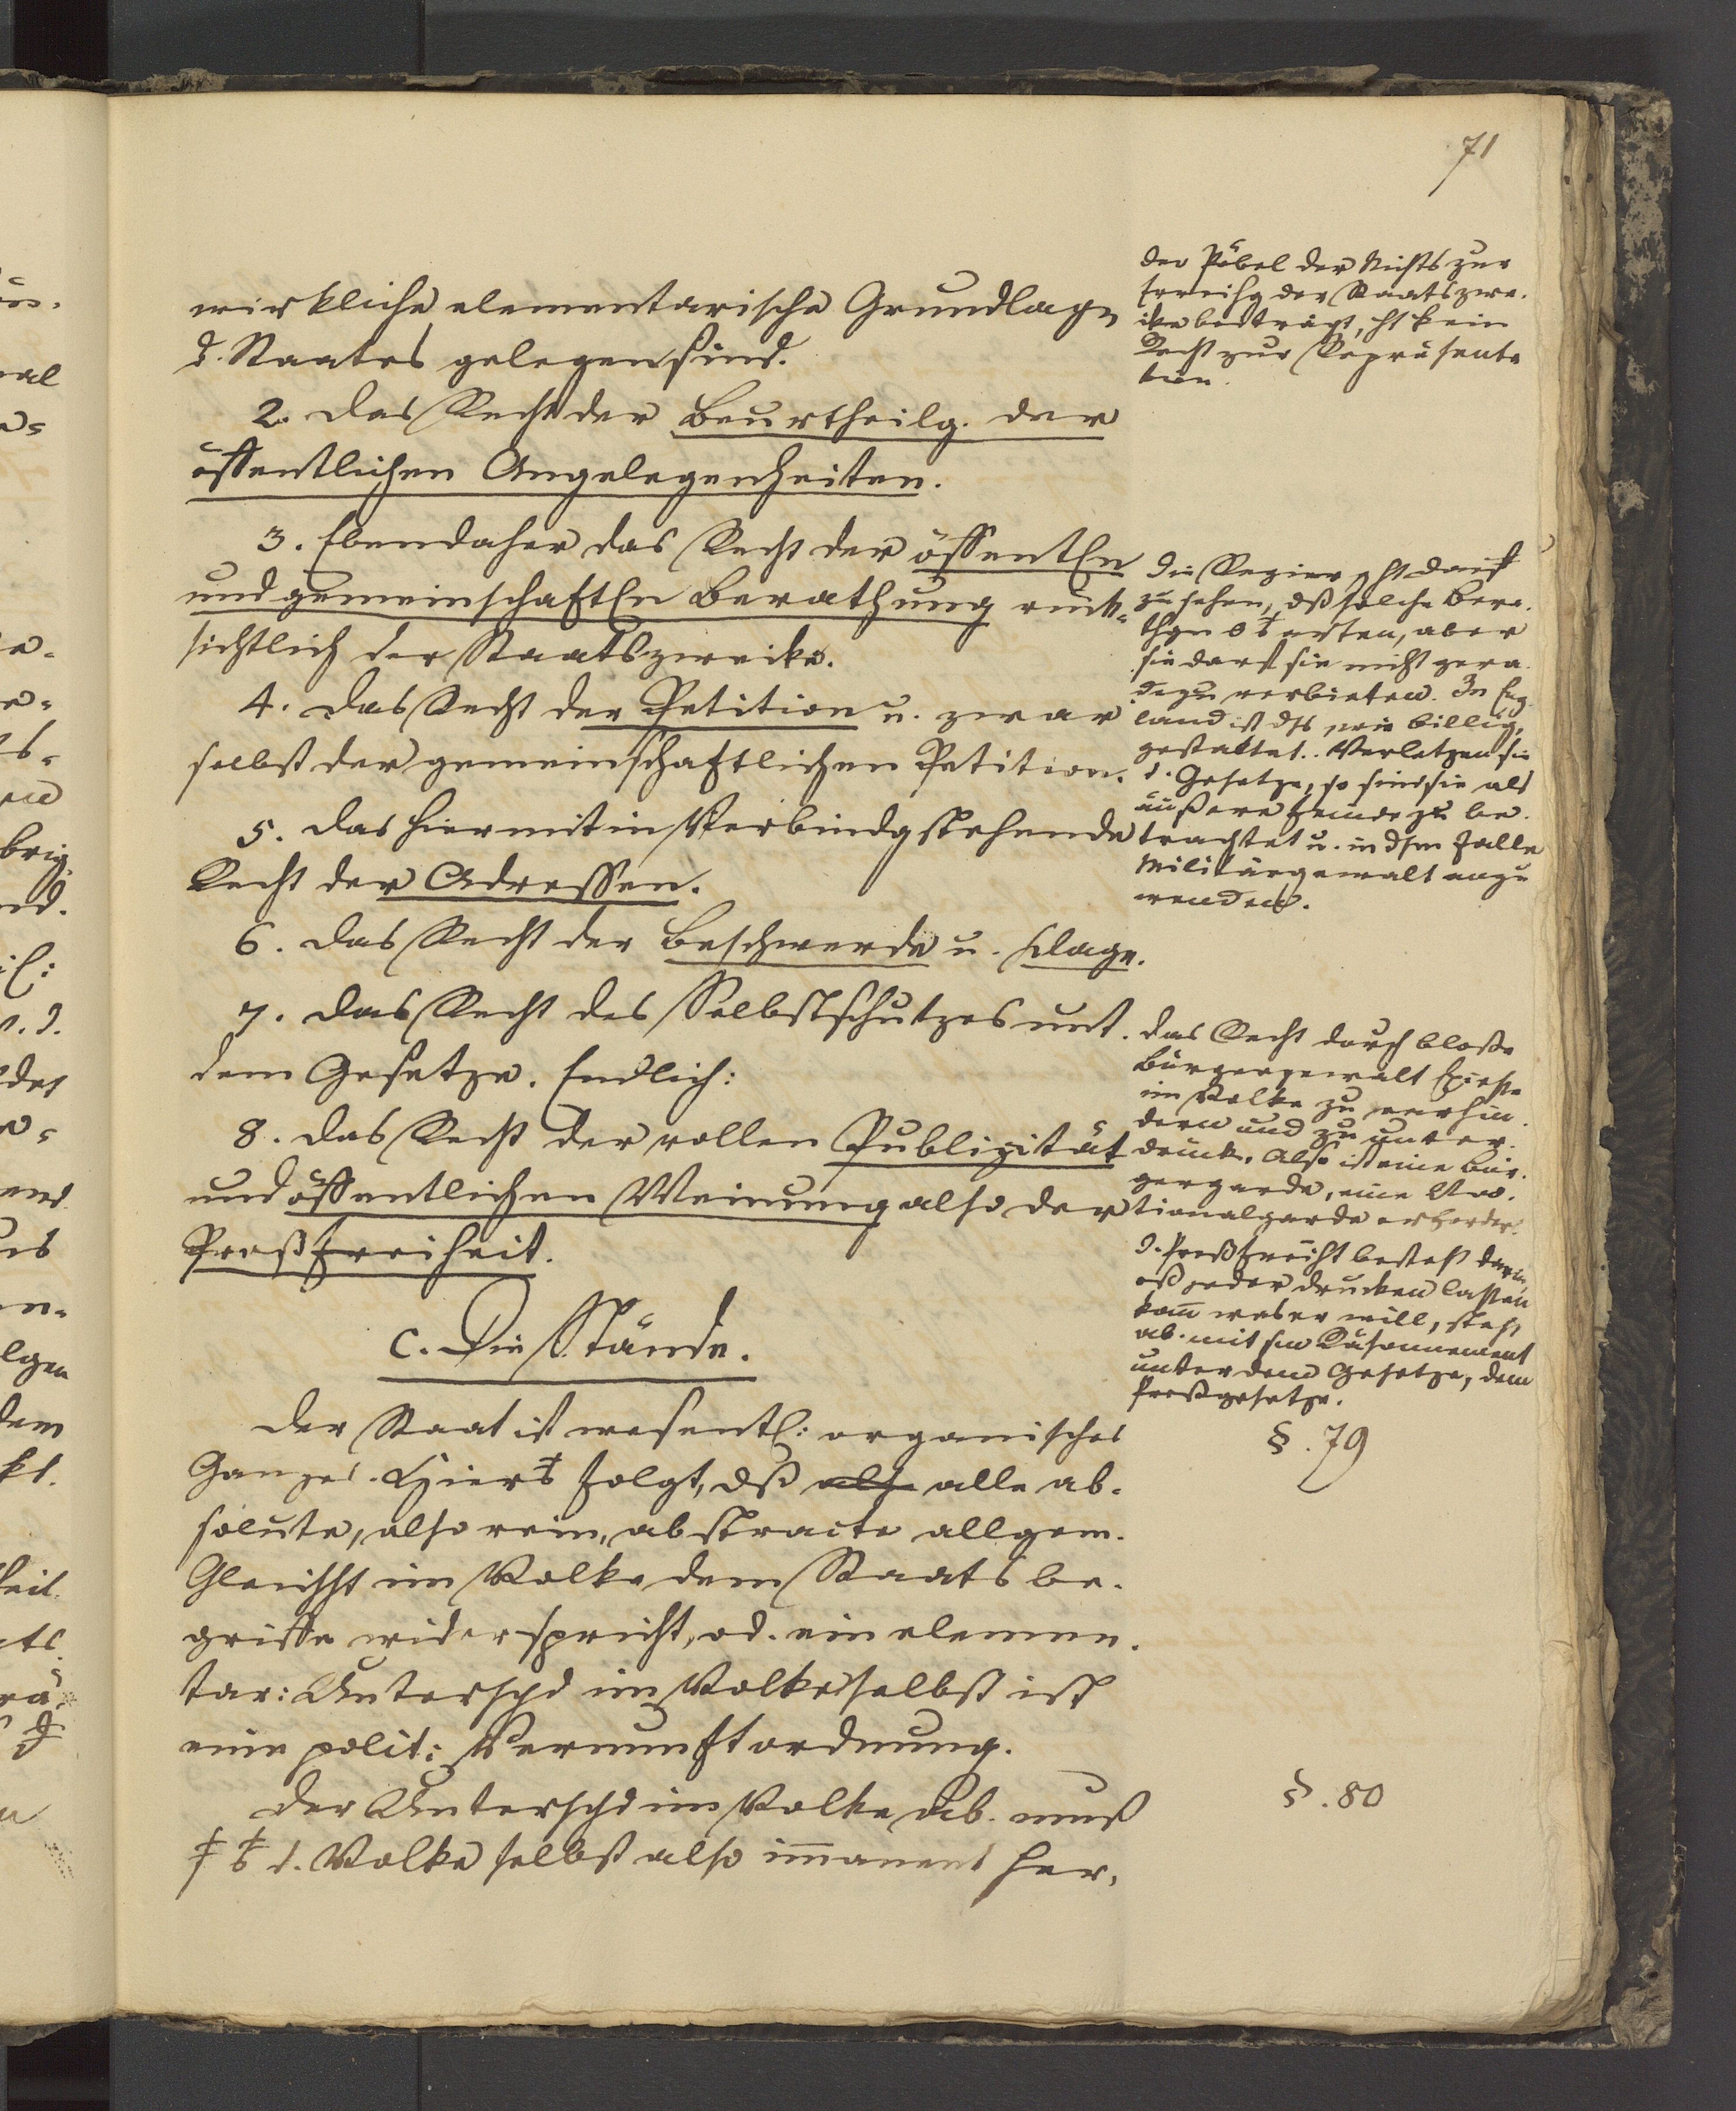 71
wirkliche elementarische Grundlage
d. Staates gelegen sind.
2. Das Recht der Beurtheilg. der
öffentlichen Angelegenheiten.
3. Ebendaher das Recht der öffentln
und gemeinschaftln Berathung rück-
sichtlich der Staatszwecke.
4. Das Recht der Petition u. zwar
selbst der gemeinschaftlichen Petition.
5. Das hiermit in Verbindg stehende
Recht der Adressen.
6. Das Recht der Beschwerde u. Klage.
7. Das Recht des Selbstschutzes unt.
dem Gesetze. Endlich:
8. Das Recht der vollen Publizität
und öffentlichen Meinung also der
Preßfreiheit.
C. Die Stände.
Der Staat ist wesentl: organisches
Ganzes. Hier folgt, dß also alle ab-
solute, also rein, abstracte allgem.
Gleichht im Volke dem Staatsbe-
griffe widerspricht, od. ein elemen-
tar: Unterschd im Volke selbst ist
eine polit: Vernunftordnung.
Der Unterschd im Volke ab. muß
d. Volke selbst also im̄anent her-
der Pöbel der Nichts zur
Erreichg der Staatszwe-
cke beiträgt, ht kein
Recht zur Repräsenta
tion.
Die Regier. ht darauf
zu sehen, dß solche Bera-
thgn arten, aber
sie darf sie nicht gera-
dezu verbieten. In Eng
land ist dß wie billig,
gestattet. Verletzen sie
d. Gesetze, so sind sie als
äußere Feinde zu be-
trachtet u. in dsm Falle
Militärgewalt anzu
wenden.
Das Recht durch bloße
Bürgergewalt Excesse
im Volke zu verhin-
dern und zu unter-
drück. Also ist eine Bür-
gergarde, eine Na-
tionalgarde erforder.
D. Preßfreiht besteht darin,
dß jeder drucken lassen
kan̄ was er will, steht
ab. mit sm Räsonnement
unter dem Gesetze, dem
Preßgesetze.
§. 79
§. 80